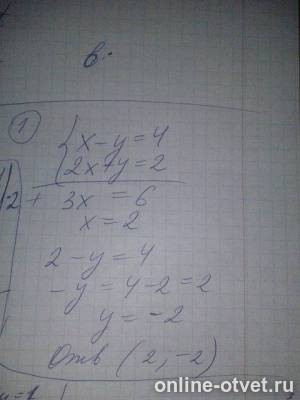 в.
1
{ x - y = 4
2x + y = 2
2 + 3x = 6
x = 2
2 - y = 4
-y = 4 - 2 = 2
y = -2
Отв (2, -2)
y = 1
online-otvet.ru